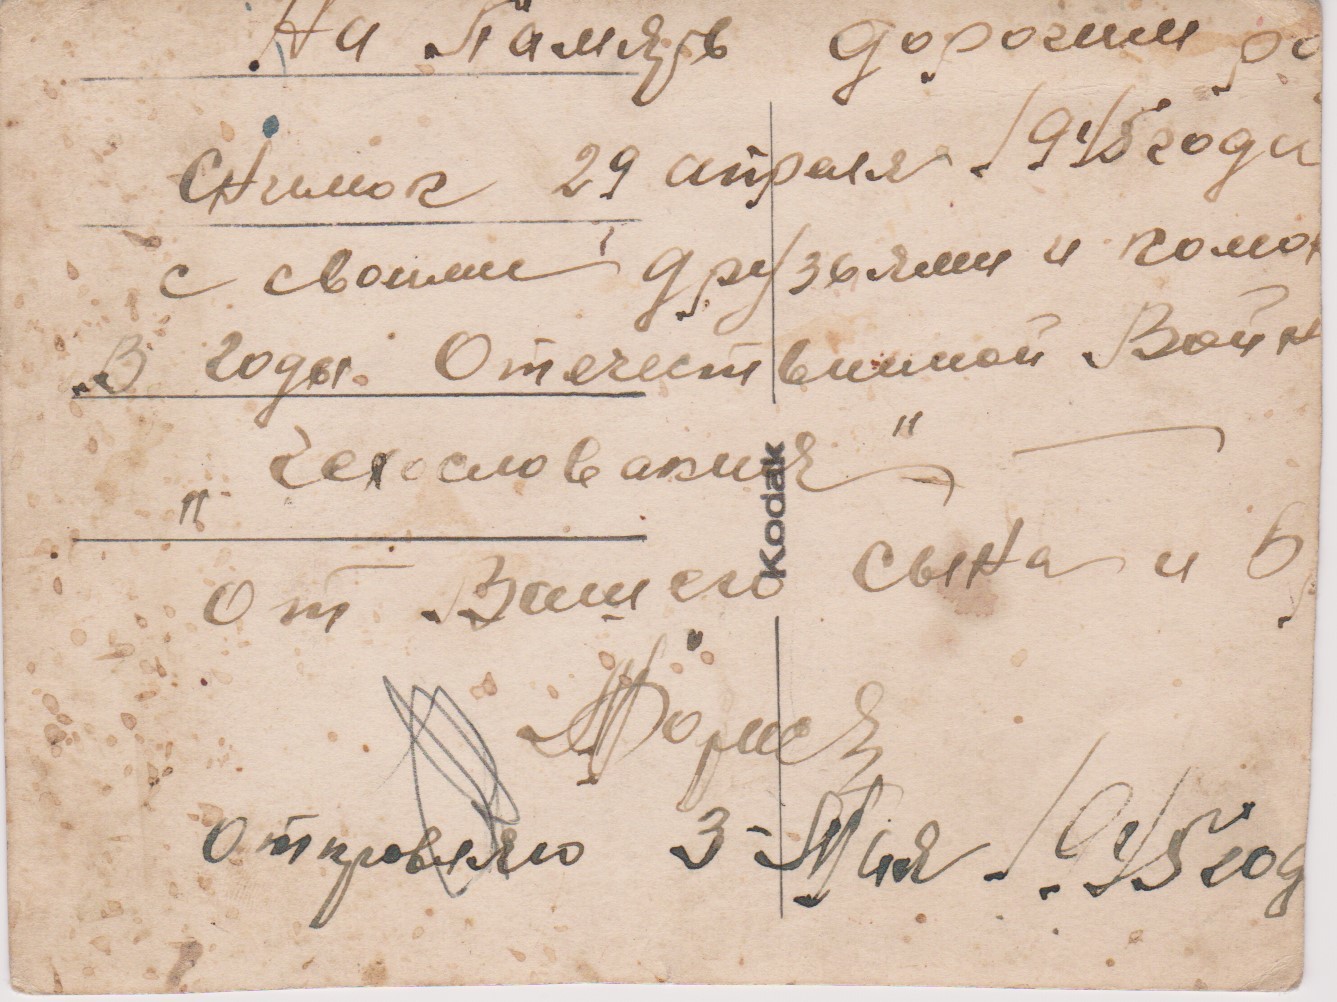 На Память дорогим ро
Снимок 29 апреля 1945 года
с своими друзьями и
В годы Отечественной Войн
"Чехословакия"
От Вашего сына и б
Отправляю 3 - Мая 1945 год
Kodak